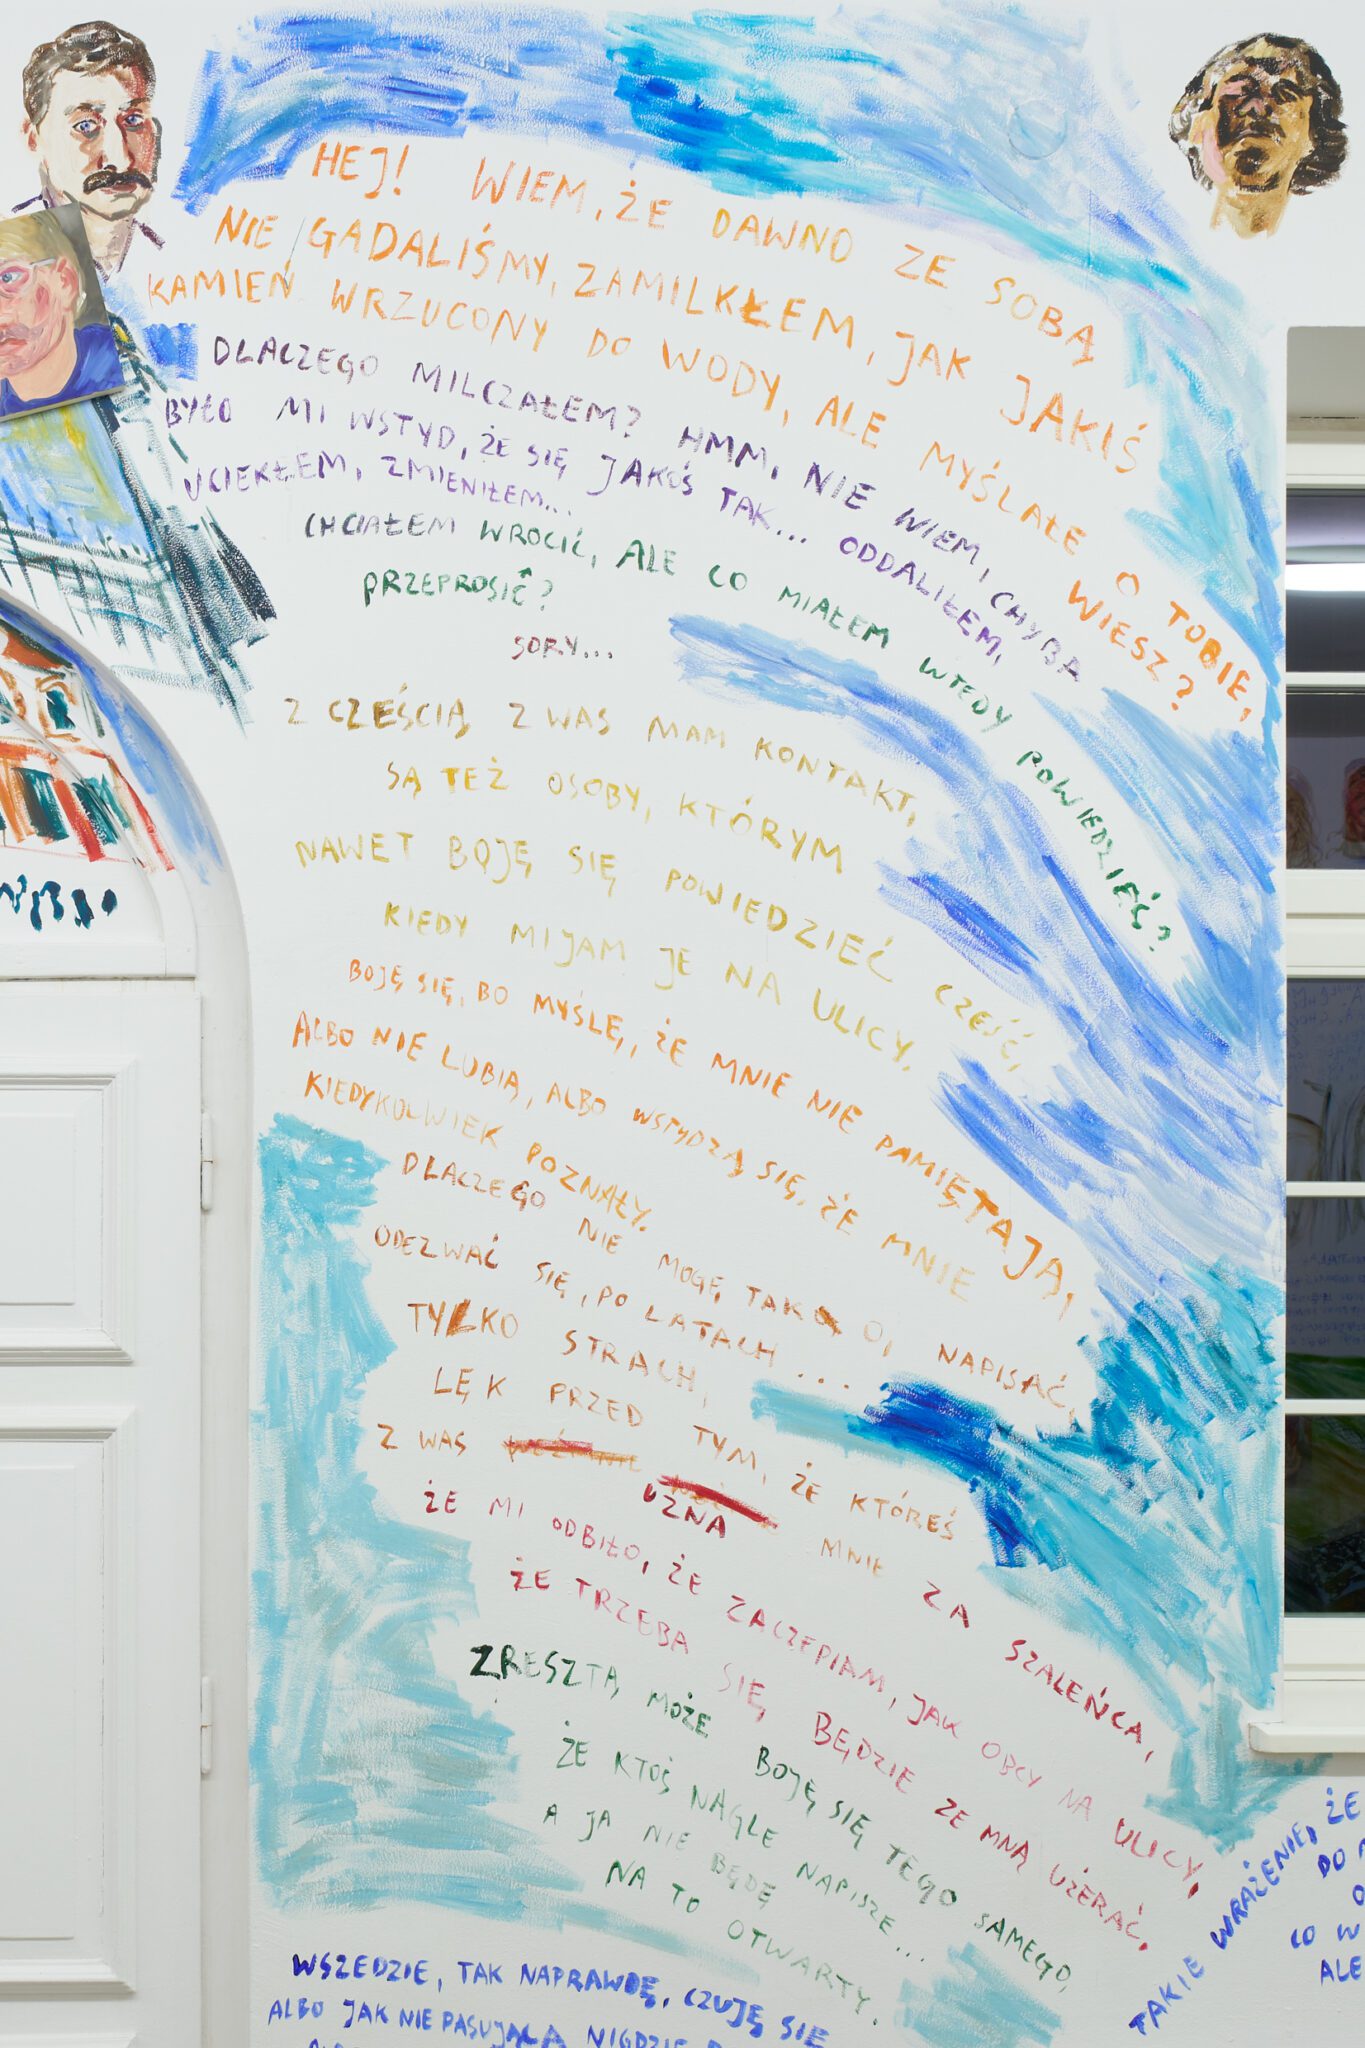 HEJ! WIEM, ŻE DAWNO ZE SOBĄ
NIE GADALIŚMY, ZAMILKŁEM, JAK JAKIŚ
KAMIEŃ WRZUCONY DO WODY, ALE MYŚLAŁE O TOBIE,
WIESZ?
DLACZEGO MILCZAŁEM? HMM, NIE WIEM, CHYBA
BYŁO MI WSTYD, ŻE SIĘ JAKOŚ TAK... ODDALIŁEM,
UCIEKŁEM, ZMIENIŁEM...
CHCIAŁEM WROCIĆ, ALE CO MIAŁEM WTEDY POWIEDZIEĆ?
PRZEPROSIĆ?
SORY...
Z CZĘŚCIĄ Z WAS MAM KONTAKT,
SĄ TEŻ OSOBY, KTÓRYM
NAWET BOJĘ SIĘ POWIEDZIEĆ CZEŚĆ,
KIEDY MIJAM JE NA ULICY.
BOJĘ SIĘ, BO MYŚLĘ, ŻE MNIE NIE PAMIĘTAJĄ,
ALBO NIE LUBIĄ, ALBO WSTYDZĄ SIĘ, ŻE MNIE
KIEDYKOLWIEK POZNAŁY.
DLACZEGO NIE MOGĘ TAK O, NAPISAĆ,
ODEZWAĆ SIĘ, PO LATACH...
TYLKO STRACH,
LĘK PRZED TYM, ŻE KTÓREŚ
Z WAS UZNA MNIE ZA SZALEŃCA,
ŻE MI ODBIŁO, ŻE ZACZEPIAM, JAK OBCY NA ULICY,
ŻE TRZEBA SIĘ BĘDZIE ZE MNĄ UŻERAĆ.
ZRESZTĄ, MOŻE BOJĘ SIĘ TEGO SAMEGO,
ŻE KTOŚ NAGLE NAPISZE...
A JA NIE BĘDĘ
NA TO OTWARTY.
WSZEDZIE, TAK NAPRAWDĘ, CZUJĘ SIĘ
ALBO JAK NIE PASUJĄCA NIGDZIE
TAKIE WRAŻENIE, ŻE
DO
CO W
ALE